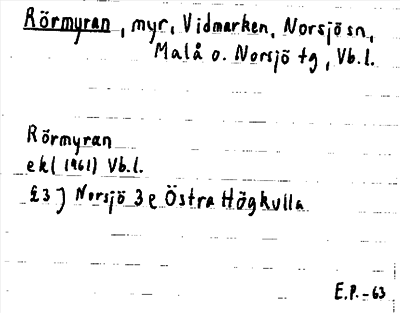 Rörmyran, myr, Vidmarken, Norsjö sn,
Malå o. Norsjö tg, Vb.l.
Rörmyran
ekl (1961) Vb.l.
23 J Norsjö 3 e Östra Högkulla
E.P.-63